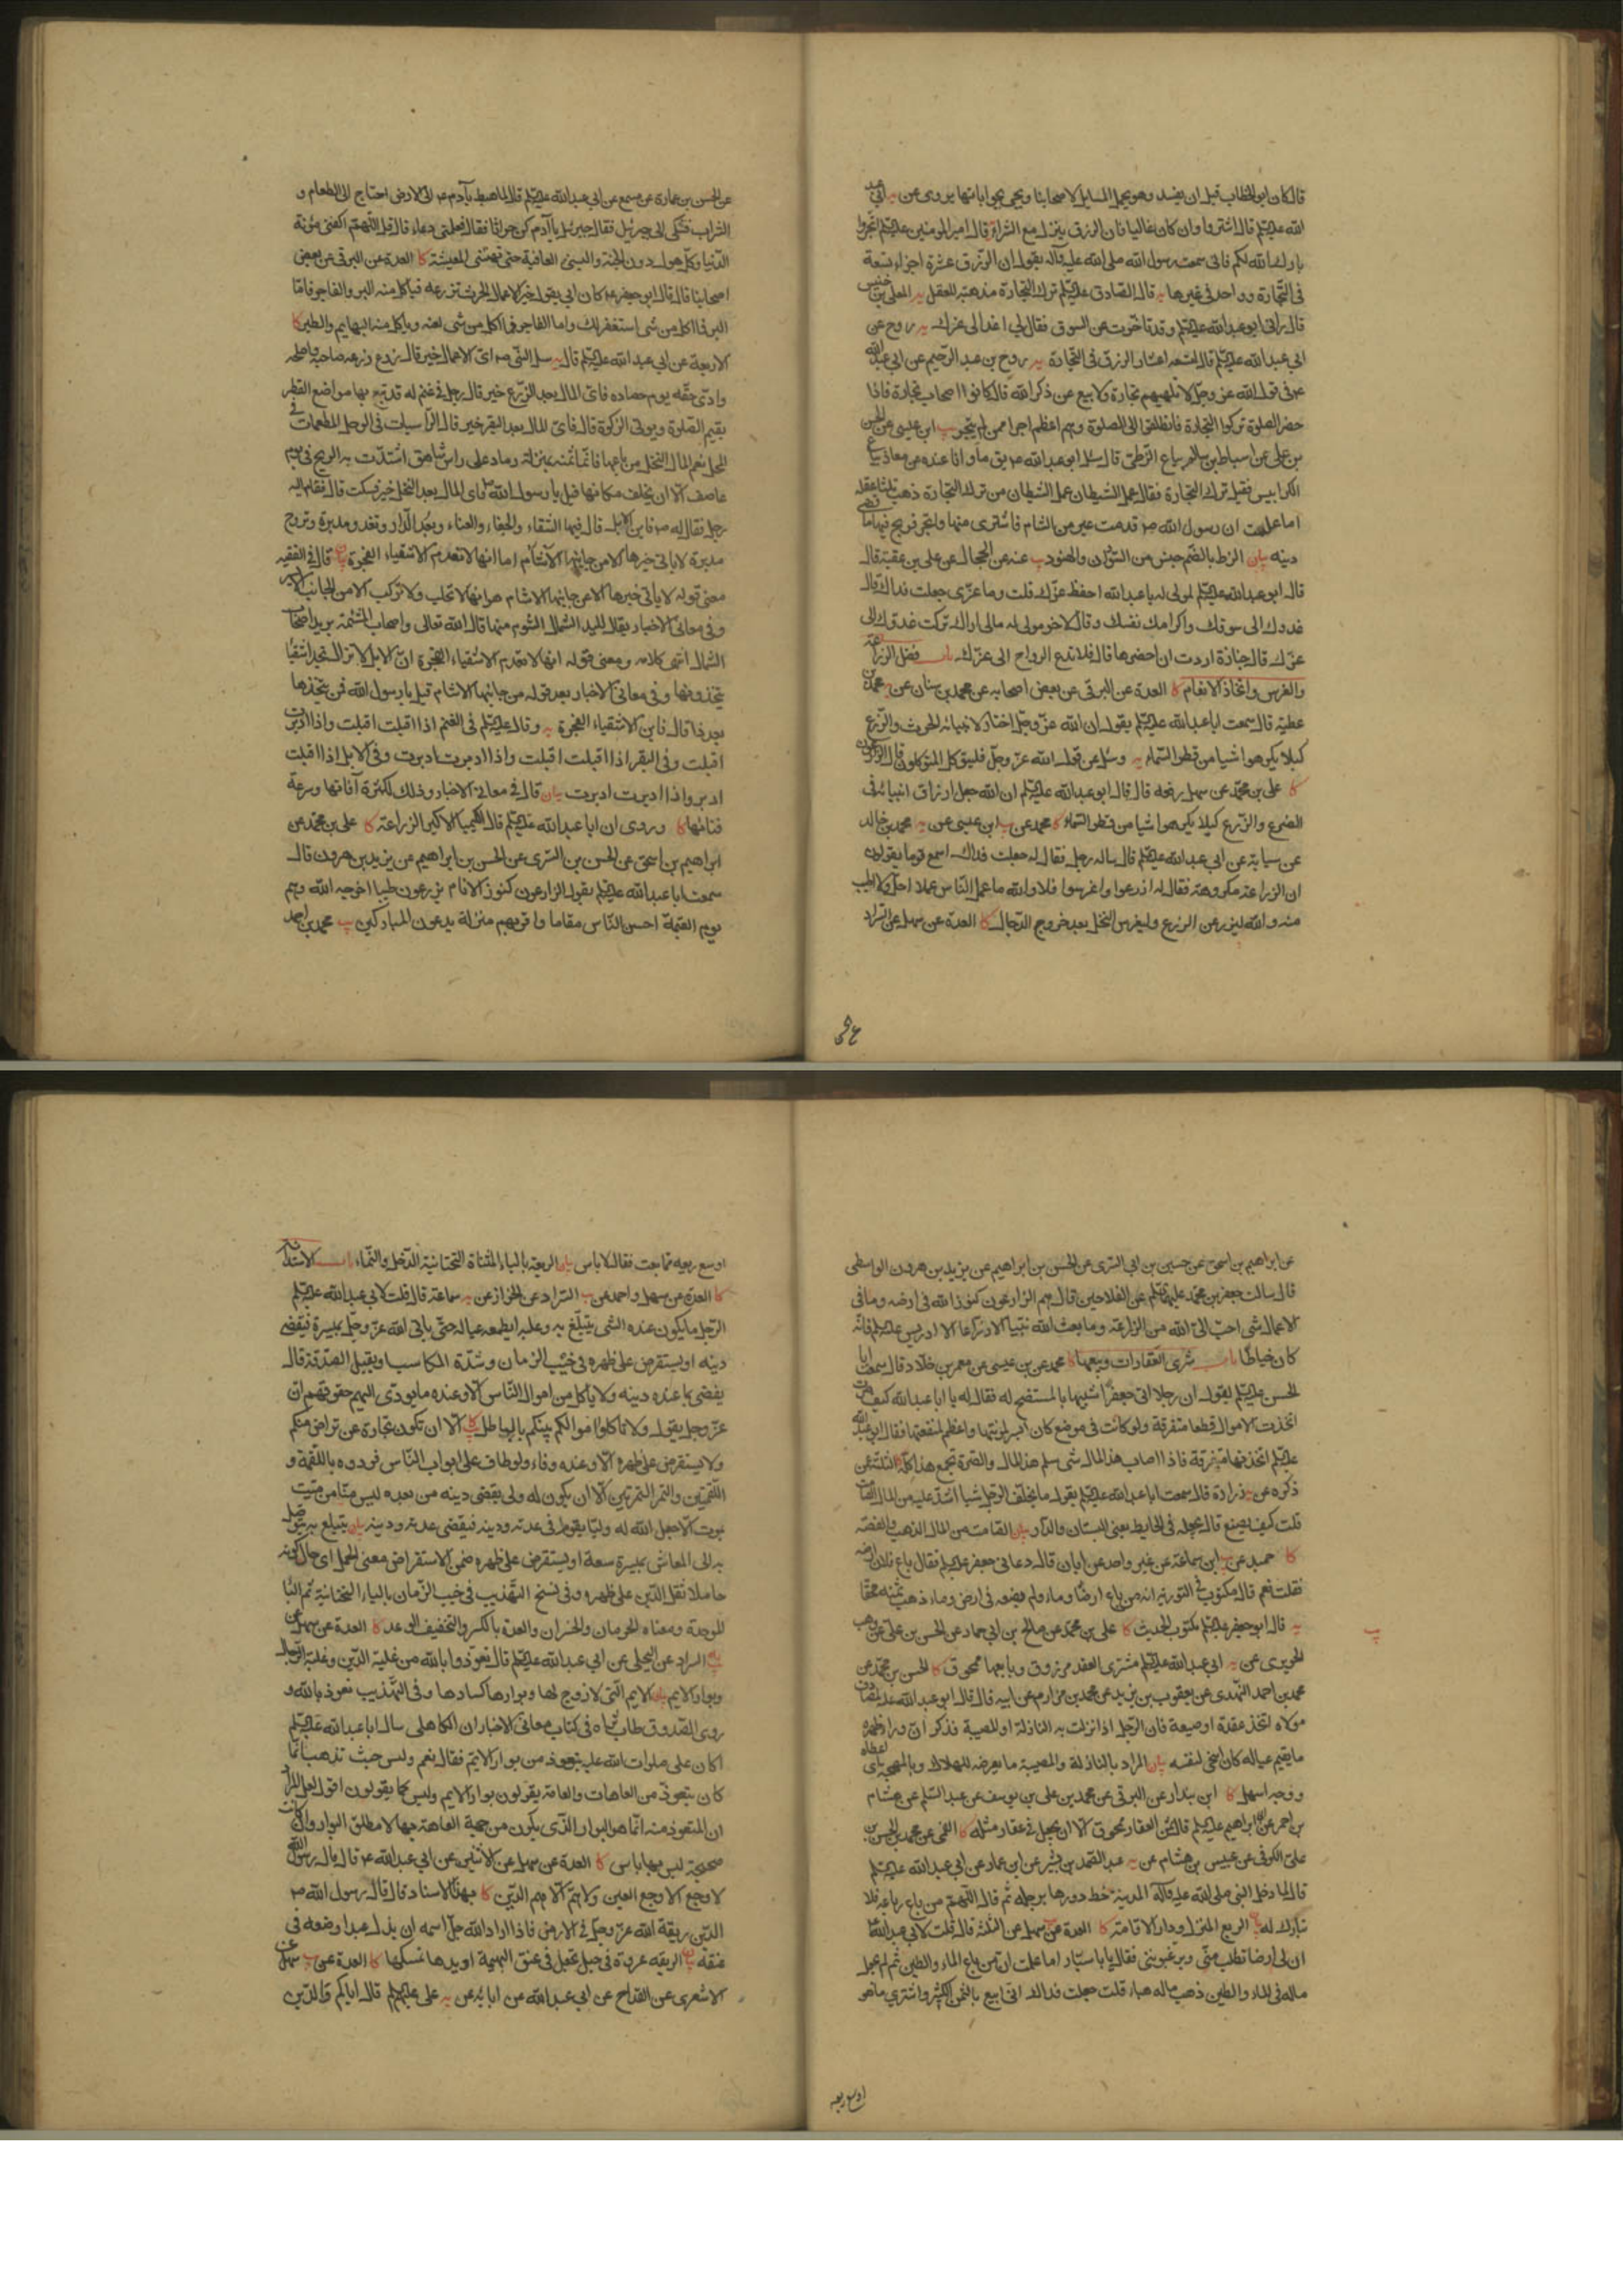 قال كان ابو الخطاب قبل ان يفسد وهو يحمل المسايل لاصحابنا ويجئ بجواباتها يروى عن يه ابي عبد
الله عليه السلم قال اشتروا وان كان غاليا فان الرزق ينزل مع الشراء قال امير المومنين عليه السلم اتجروا
بارك الله لكم فانى سمعت رسول الله صلى الله عليه وآله يقول ان الرزق عشرة اجزاء تسعة
فى التجارة وواحد فى غيرها يه قال الصادق عليه السلم ترك التجارة مذهبة للعقل يه المعلى بن خنيس
قال رانى ابو عبد الله عليه السلم وقد تاخرت عن السوق فقال لي اغد الى عزك يه روح عن
ابي عبد الله عليه السلم قال تسعة اعشار الرزق فى التجارة يه روح بن عبد الرحيم عن ابي عبد الله
ع فى قول الله عز وجل لا تلهيهم تجارة ولا بيع عن ذكر الله قال كانوا اصحاب تجارة فاذا
حضر الصلوة تركوا التجارة فانطلقوا الى الصلوة وهم اعظم اجرا ممن لم يتجر يب ابن عيسى عن الحسن
بن على عن اسباط بن سالم بياع الزطى قال سال ابو عبد الله ع يوما وانا عنده عن معاذ بياع
الكرابيس فقيل ترك التجارة فقال عمل الشيطان عمل الشيطان من ترك التجارة ذهب ثلثا عقله
اما علمت ان رسول الله ص قدمت عير من الشام فاشترى منها واتجر فربح فيها ما قضى
دينه بيان الزط بالضم جنس من السودان والهنود يب عنه عن الحجال عن على بن عقبة قال
قال ابو عبد الله عليه السلم لمولى له يا عبد الله احفظ عزك قلت وما عزى جعلت فداك قال
غدوك الى سوقك واكرامك نفسك وقال لآخر مولى له مالى اراك تركت غدوك الى
عزك قال جنازة اردت ان احضرها قال فلا تدع الرواح الى عزك باب فضل الزراعة
والغرس واتخاذ الانعام كا العدة عن البرقى عن بعض اصحابه عن محمد بن سنان عن يه محمد بن
عطية قال سمعت ابا عبد الله عليه السلم يقول ان الله عز وجل اختار لانبيائه الحرث والزرع
كيلا يكرهوا شيا من قطر السماء يه وسئل عن قول الله عز وجل فليتوكل المتوكلون قال الزارعون
كا على بن محمد عن سهل رفعه قال قال ابو عبد الله عليه السلم ان الله جعل ارزاق انبيائه فى
الضرع والزرع كيلا يكرهوا شيا من قطر السماء كا محمد عن يب ابن عيسى عن يه محمد بن خالد
عن سيابة عن ابي عبد الله عليه السلم قال ساله رجل فقال له جعلت فداك اسمع قوما يقولون
ان الزراعة مكروهة فقال له ازرعوا واغرسوا فلا والله ما عمل الناس عملا احل ولا اطيب
منه والله ليزرعن الزرع وليغرس النخل بعد خروج الدجال كا العدة عن سهل عن السراد
عن الحسن بن عمارة عن مسمع عن ابي عبد الله عليه السلم قال لما هبط بآدم ع الى الارض احتاج الى الطعام و
الشراب فشكى الى جبرئيل فقال جبرئيل يا آدم كن حراثا فقال فعلمنى دعاء قال قل اللهم اكفنى مؤنة
الدنيا وكل هول دون الجنة والبسنى العافية حتى تهنئنى المعيشة كا العدة عن البرقى عن بعض
اصحابنا قال قال ابو جعفر ع كان ابي يقول خير الاعمال الحرث تزرعه فياكل منه البر والفاجر فاما
البر فما اكل من شئ استغفر لك واما الفاجر فما اكل من شئ لعنه وياكل منه البهايم والطير كا
الاربعة عن ابي عبد الله عليه السلم قال يه سئل النبى ص اى الاعمال خير قال زرع زرعه صاحبه واصلحه
وادى حقه يوم حصاده قال فاى المال بعد الزرع خير قال رجل فى غنم له قد تبع بها مواضع القطر
يقيم الصلوة ويوتى الزكوة قال فاى المال بعد الغنم خير قال البقر
المحل نعم المال النخل من باعها فانما ثمنه بمنزلة رماد على راس شاهق اشتدت به الريح فى يوم
عاصف الا ان يخلف مكانها قيل يا رسول الله ص فاى المال بعد النخل خير فسكت قال فقام اليه
رجل فقال له ص فاين الابل قال فيها الشقاء والجفاء والعناء وبعد الدار وتغدو مدبرة وتروح
مدبرة لا ياتى خيرها الا من جانبها الاشأم اما انها لا تعدم الاشقياء الفجرة بيان قال فى الفقيه
معنى قوله لا ياتى خيرها الا من جانبها الاشام هو انها لا تحلب ولا تركب الا من الجانب الايسر
وفى معانى الاخبار يقال لليد الشمال الشوم منها قال الله تعالى واصحاب المشئمة يريد اصحاب
الشمال انتهى كلامه ومعنى قوله انها لا تعدم الاشقياء الفجرة ان الابل لا تزال تجد اشقياء
يتخذونها وفى معانى الاخبار بعد قوله من جانبها الاشام قيل يا رسول الله فمن يتخذها
بعد ذا قال فاين الاشقياء الفجرة يه وقال عليه السلم فى الغنم اذا اقبلت اقبلت واذا ادبرت
اقبلت وفى البقر اذا اقبلت اقبلت واذا ادبرت ادبرت وفى الابل اذا اقبلت
ادبر واذا ادبرت ادبرت بيان قال فى معانى الاخبار وذلك لكثرة آفاتها وسرعة
فنائها كا وروى ان ابا عبد الله عليه السلم قال الكيميا الاكبر الزراعة كا على بن محمد عن
ابراهيم بن اسحق عن الحسن بن السرى عن الحسن بن ابراهيم عن يزيد بن هرون قال
سمعت ابا عبد الله عليه السلم يقول الزارعون كنوز الانام يزرعون طيبا اخرجه الله وهم
يوم القيمة احسن الناس مقاما واقربهم منزلة يدعون المباركين يب محمد بن احمد
عن ابراهيم بن اسحق عن حسين بن ابي السرى عن الحسن بن ابراهيم عن يزيد بن هرون الواسطى
قال سالت جعفر بن محمد عليهما السلم عن الفلاحين قال هم الزارعون كنوز الله فى ارضه وما فى
الاعمال شئ احب الى الله من الزراعة وما بعث الله نبيا الا زراعا الا ادريس عليه السلم فانه
كان خياطا باب شرى العقارات وبيعها كا محمد عن بن عيسى عن معمر بن خلاد قال سمعت ابا
الحسن عليه السلم يقول ان رجلا اتى جعفرا شبيها بالمستنصح له فقال له يا ابا عبد الله كيف صرت
اتخذت الاموال قطعا متفرقة ولو كانت فى موضع كان ايسر لمونتها واعظم لمنفعتها فقال ابو عبد الله
عليه السلم اتخذتها متفرقة فاذا اصاب هذا المال شئ سلم هذا المال والصرة تجمع هذا كله كا الثلثة عن
ذكره عن يه زرارة قال سمعت ابا عبد الله عليه السلم يقول ما يخلف الرجل شيا اشد عليه من المال الصامت
قلت كيف يصنع قال يجعله فى الحايط يعنى البستان والدار بيان الصامت من المال الذهب والفضة
كا حميد عن يب ابن سماعة عن غير واحد عن ابان قال دعانى جعفر عليه السلم فقال باع فلان ارضه
فقلت نعم قال مكتوب فى التورية انه من باع ارضا وماء ولم يضعه فى ارض وماء ذهب ثمنه محقا
يه قال ابو جعفر عليه السلم مكتوب الحديث كا على بن محمد عن صالح بن ابي حماد عن الحسن بن على عن وهب
الحريرى عن يه ابي عبد الله عليه السلم مشترى العقد مرزوق وبايعها ممحوق كا الحسن بن محمد عن
محمد بن احمد النهدى عن يعقوب بن يزيد عن محمد بن مرازم عن ابيه قال قال ابو عبد الله عليه السلم لمصادف
مولاه اتخذ عقدة او ضيعة فان الرجل اذا نزلت به النازلة او المصيبة فذكر ان وراء ظهره
ما يقيم عياله كان اسخى لنفسه بيان المراد بالنازلة والمصيبة ما يعرضه للهلاك وبالمهجة
وروحه اسهل كا ابن بندار عن البرقى عن محمد بن على عن يوسف عن عبد السلم عن هشام
بن احمر عن ابي ابراهيم عليه السلم قال ثمن العقار ممحوق الا ان يجعل فى عقار مثله كا القمى عن محمد بن الحسن بن
على الكوفى عن عبيس بن هشام عن يه عبد الصمد بن بشير عن ابن عمار عن ابي عبد الله عليه السلم
قال لما دخل النبى صلى الله عليه وآله المدينة خط دورها برجله ثم قال اللهم من باع رباعه فلا
تبارك له بيان الربع المنزل ودار الاقامة كا العدة عن سهل عن الثلثة قال قلت لابي عبد الله ع
ان لى ارضا تطلب منى ويرغبوننى فقال يا با سيار اما علمت ان من باع الماء والطين ثم لم يجعل
ماله فى الماء والطين ذهب ماله هباء قلت جعلت فداك انى ابيع بالثمن الكثير واشترى ما هو
اوسع ربعه
اوسع ربعه مما بعت فقال لا باس بيان الريعة بالياء المثناة التحتانية الدخل والنماء باب الاستدانة
كا العدة عن سهل واحمد عن يب السراد عن الخزاز عن يه سماعة قال قلت لابي عبد الله عليه السلم
الرجل ما يكون عنده الشئ يتبلغ به وعليه ايطعمه عياله حتى ياتى الله عز وجل بميسرة فيقضى
دينه او يستقرض على ظهره فى خبث الزمان وشدة المكاسب او يقبل الصدقة قال
يقضى بما عنده دينه ولا ياكل من اموال الناس الا وعنده ما يودى اليهم حقوقهم ان
عز وجل يقول ولا تاكلوا اموالكم بينكم بالباطل الا ان تكون تجارة عن تراض منكم
ولا يستقرض على ظهره الا وعنده وفاء ولو طاف على ابواب الناس فردوه باللقمة و
اللقمتين والتمر التمرتين الا ان يكون له ولى يقضى دينه من بعده ليس منا من ميت
يموت الا جعل الله له وليا يقوم فى عدته ودينه فيقضى عدته ودينه بيان يتبلغ به يتوصل
به الى المعاش بميسرة سعة او يستقرض على ظهره ضمن الاستقراض معنى الحمل اى حال كونه
حاملا ثقل الدين على ظهره وفى نسخ التهذيب فى خيب الزمان بالياء التحتانية ثم الباء
الموحدة ومعناه الحرمان والخسران والعدة بالكسر والتخفيف الوعد كا العدة عن سهل عن
يب السراد عن البجلى عن ابي عبد الله عليه السلم قال تعوذوا بالله من غلبة الدين وغلبة الرجال
وبوار الايم بيان الايم التى لا زوج لها وبوارها كسادها وفى التهذيب نعوذ بالله و
روى الصدوق طاب ثراه فى كتاب معانى الاخبار ان الكاهلى سال ابا عبد الله عليه السلم
اكان على صلوات الله عليه يتعوذ من بوار الايم فقال نعم وليس حيث تذهب انما
كان يتعوذ من العاهات والعامة يقولون بوار الايم وليس كما يقولون اقول لعل المراد
ان المتعوذ منه انما هو البوار الذى يكون من جهة العاهة بها لا مطلق البوار وان كانت
صحيحة ليس بها باس كا العدة عن سهل عن الاثنين عن ابي عبد الله ع قال قال رسول الله
لا وجع الا وجع العين ولا هم الا هم الدين كا بهذا الاسناد قال قال رسول الله ص
الدين ربقة الله عز وجل فى الارض فاذا اراد الله جل اسمه ان يذل عبدا وضعه فى
عنقه بيان الربقه عروة فى حبل تجعل فى عنق البهيمة او يدها تمسكها كا العدة عن يب سهل عن
الاشعرى عن القداح عن ابي عبد الله عن ابائه عن يه على عليه السلم قال اياكم والدين